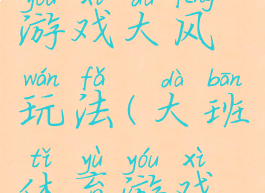 yóu xì dà fēng
游戏大风
wán fǎ dà bān
玩法(大班
tǐ yù yóu xì
体育游戏